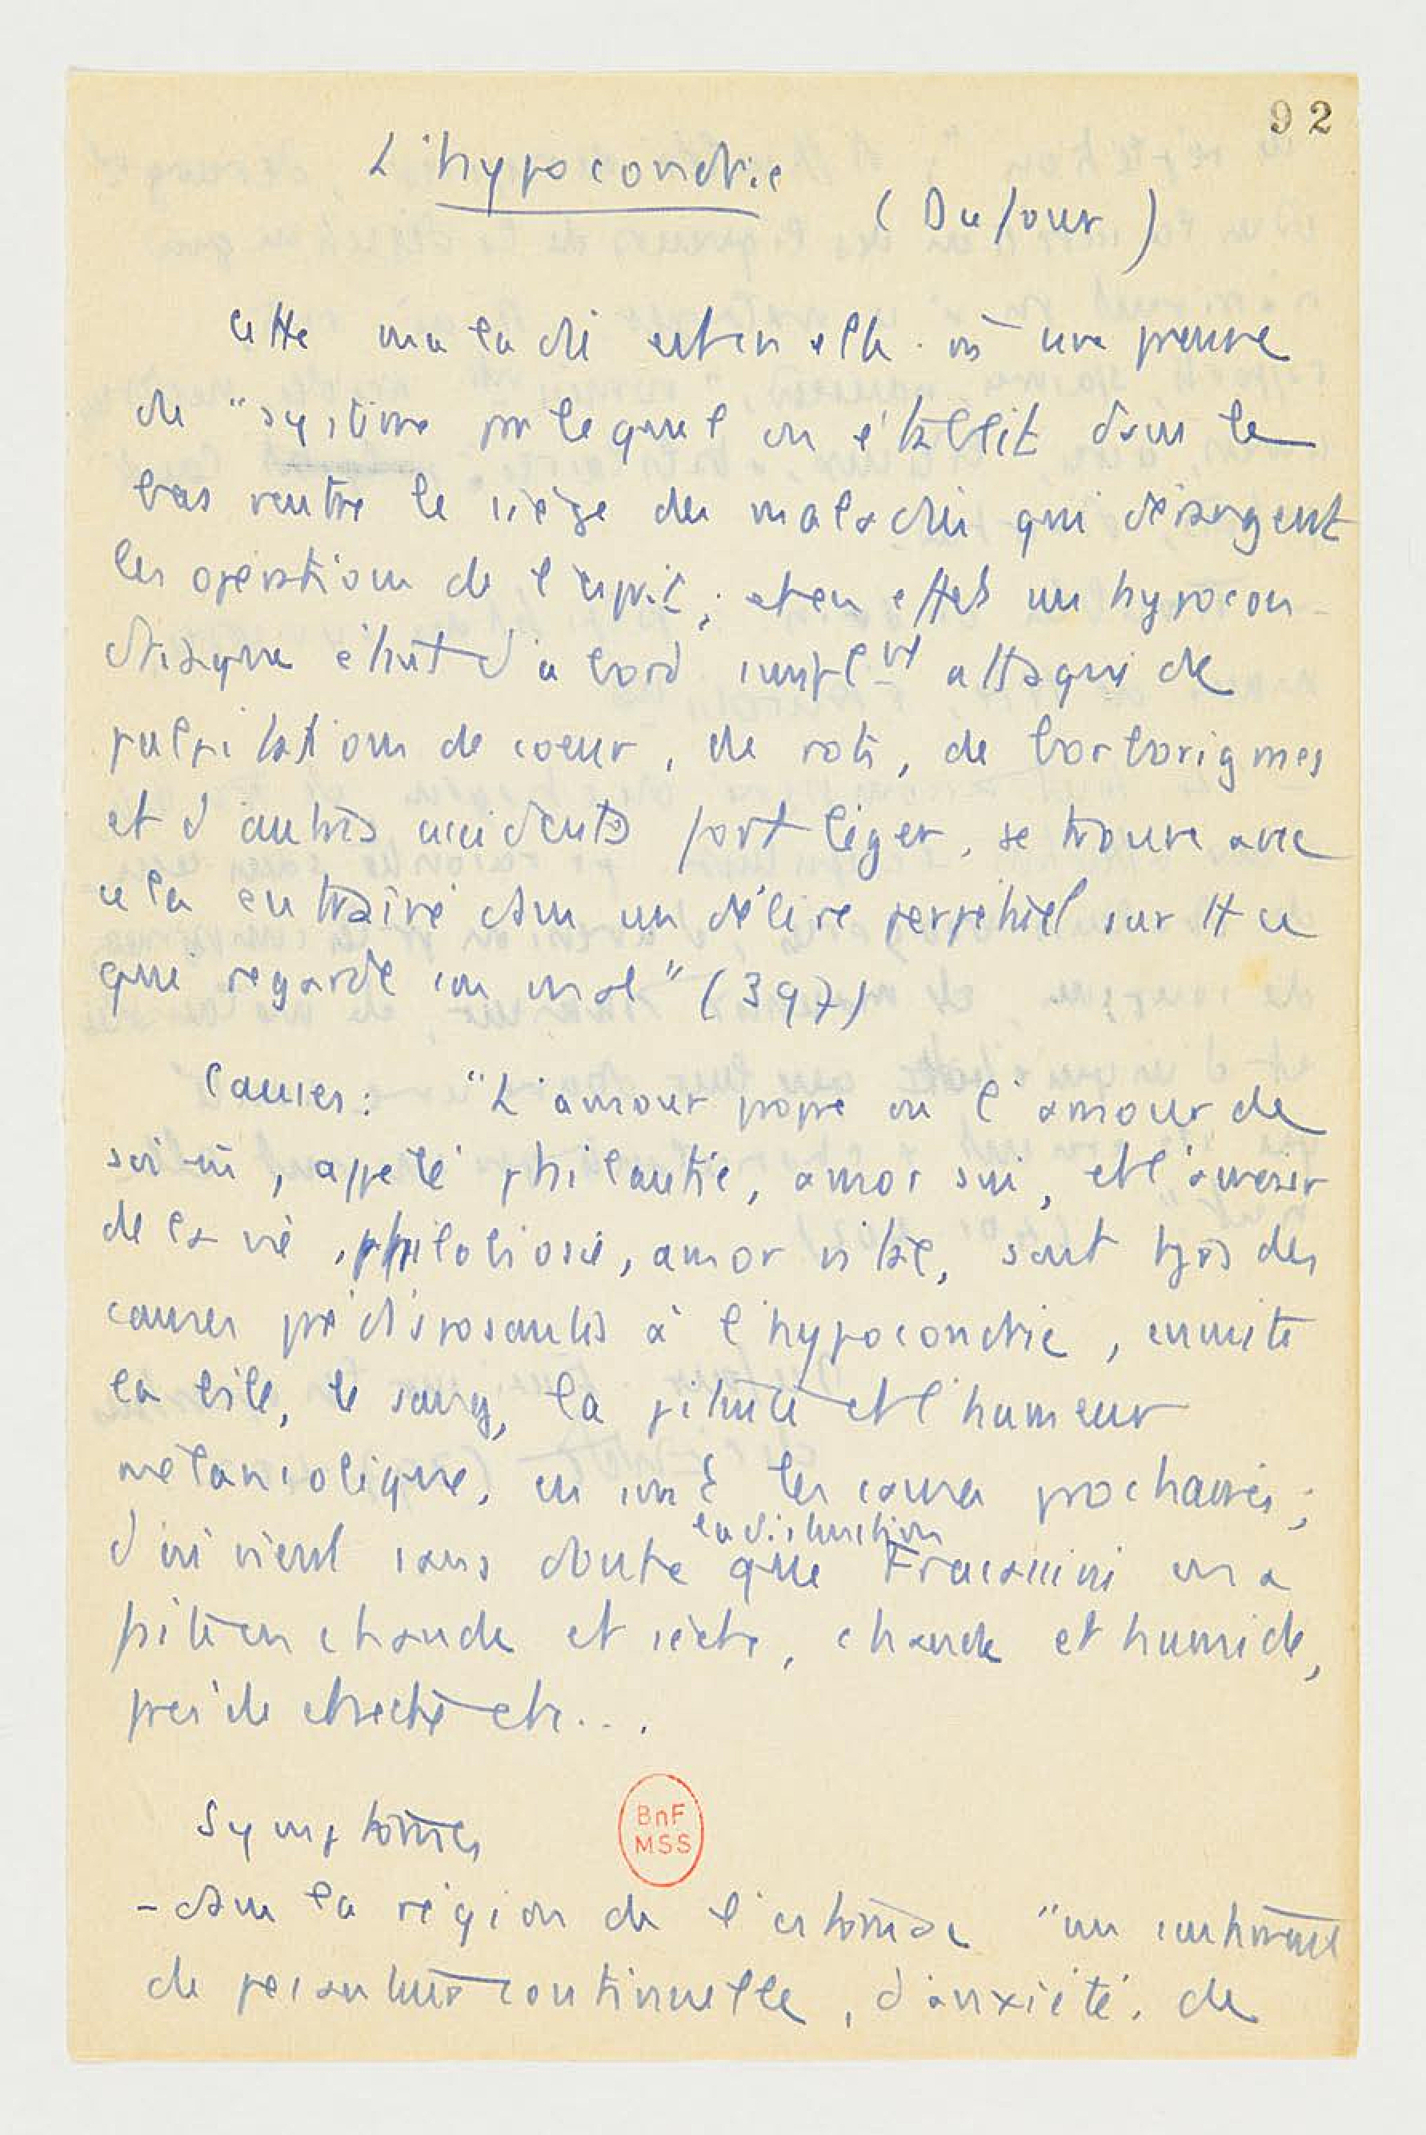 92
L'hypocondrie
(Dufour)
Cette maladie est en elle-ms une preuve
du "système par lequel on établit dans le
bas ventre le siège des maladies qui dérangent
les opérations de l'esprit ; et en effet un hypocon-
driaque étant d'abord simplt attaqué de
palpitations de coeur, de rots, de borborigmes
et d'autres accidents fort léger, se trouve avec
cela entraîné dans un délire perpétuel sur tt ce
qui regarde son mal" (397)
Causes : "L'amour propre ou l'amour de
soi-m, appelé philautie, amor sui, et l'amour
de la vie, philobiosie, amor vitae, sont tjrs des
causes prédisposantes à l'hypocondrie, ensuite
la bile, le sang, la pituite et l'humeur
mélancolique, en sont les causes prochaines ;
d'où vient sans doute que la distinction
Fracassini en a
faite en chaude et sèche, chaude et humide,
froide et sèche etc...
Symptômes
BnF
MSS
- dans la région de l'estomac "un sentiment
de pesanteur continuelle, d'anxiété, de